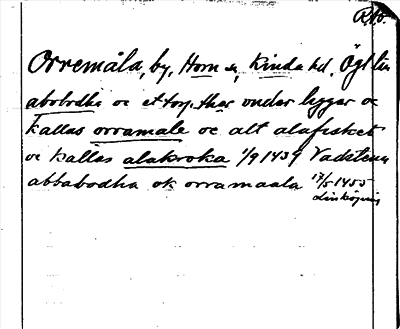 RAp.
Orremåla, by, Horn sn, Kinda hd, Ögl län
abolrdha oc et torp thär under liggar oc
kallas orramale oc alt alafisket
oc kallas alakroka 1/9 1439 Vadstena
abbabodha ok orramaala 17/5 1455
Linköping